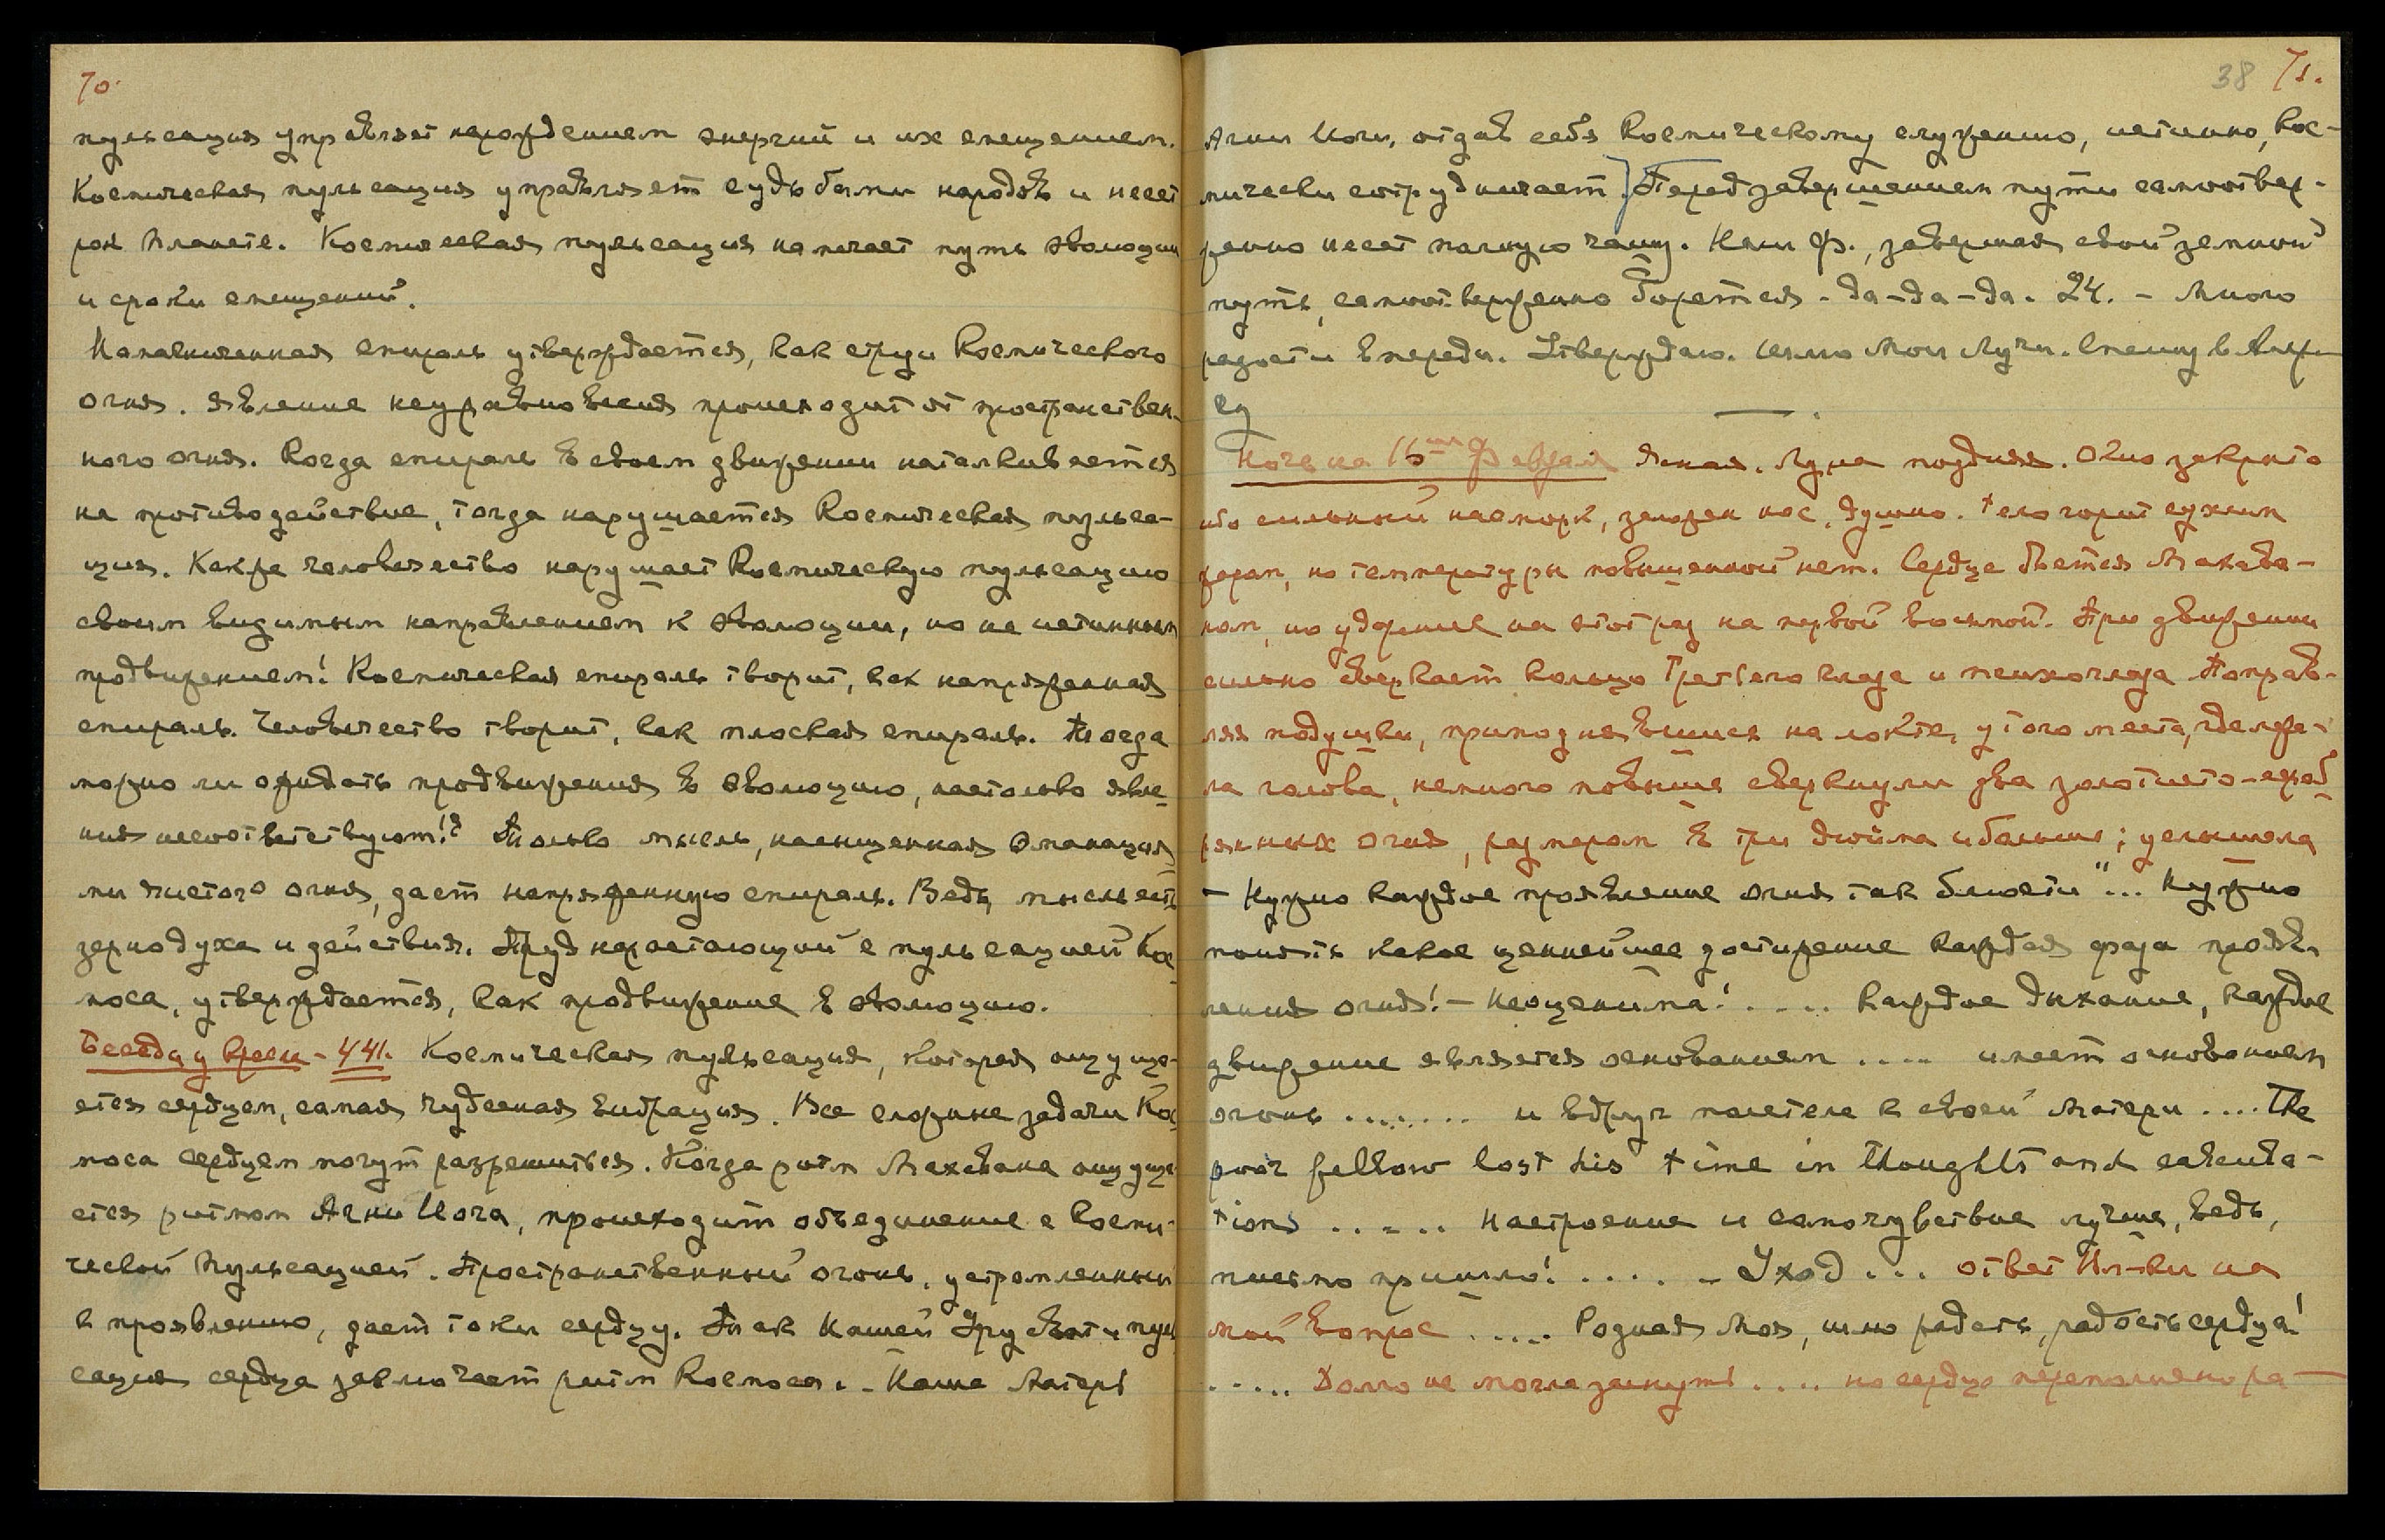 70.
пульсация управляет нарождением энергий и их смещением.
Космическая пульсация управляет судьбами народов и несет
рок планете. Космическая пульсация намечает путь эволюции
и сроки смещений.
Намагниченная спираль утверждается, как струи Космического
огня. Явление неуравновесия происходит от пространствен-
ного огня. Когда спираль в своем движении наталкивается
на противодействие, тогда нарушается Космическая пульса-
ция. Как же человечество нарушает Космическую пульсацию
своим видимым направлением к эволюции, но не истинным
продвижением! Космическая спираль творит, как напряженная
спираль. Человечество творит, как плоская спираль. Тогда
можно ли ожидать продвижения в эволюцию, настолько явле
ния несоответствуют!? Только мысль, насыщенная эманация
ми чистого огня, дает напряженную спираль. Ведь, мысль есть
зерно духа и действия. Труд нарастающий с пульсацией Кос
моса, утверждается, как продвижение в эволюцию.
Беседа у Креси - 441. Космическая пульсация, которая ощуща-
ется сердцем, самая чудесная вибрация. Все сложные задачи Кос
моса сердцем могут разрешиться. Когда ритм Махавана ощуща
ется ритмом Агни Йога, происходит объединение с Косми-
ческой Пульсацией. Пространственный огонь, устремленный
к проявлению, дает токи сердцу. Так Нашей Урусвати пуль
сация сердца заключает ритм Космоса. - Наша Матерь
38 71.
Агни Йоги, отдав себя Космическому служению, истинно, Кос-
мически сотрудничает. Перед завершением пути самоотвер-
женно несет полную чашу. Наш Ф., завершая свой земной
путь, самоотверженно борется. Да-да-да. 24. - Много
радости впереди. Утверждаю. Шлю Мои Лучи. Спешу в Амри
су
Ночь на 16ое Февраля Ясная. Луна поздняя. Окно закрыто
ибо сильный насморк, заложен нос, душно. Тело горит сухим
жаром, но температуры повышенной нет. Сердце бьется Махава-
ном, но ударение на этот раз на первой восьмой. При движении
сильно сверкает кольцо Третьего глаза и психоглаза Поправ-
ляя подушки, приподнявшися на локте, у того места, где лежа-
ла голова, немного повыше сверкнули два золотисто-сереб
рянных огня, размером в три дюйма и больше; услышала
- Нужно каждое проявление огня так блюсти"... Нужно
понять какое ценнейшее достижение каждая фаза прояв-
ления огня! - Неоценима! .... Каждое дыхание, каждое
движение является основанием .... имеет основанием
огонь ....... и вдруг полетела к своей Матери .... The
poor fellow lost his time in thoughts and calcula-
tions ..... Настроение и самочувствие лучше, ведь,
письмо пришло! ..... Уход ... ответ Вл-ки на
мой вопрос ..... Родная Моя, шлю радость, радость сердца!
..... Долго не могла заснуть .... но сердце переполнено ра-